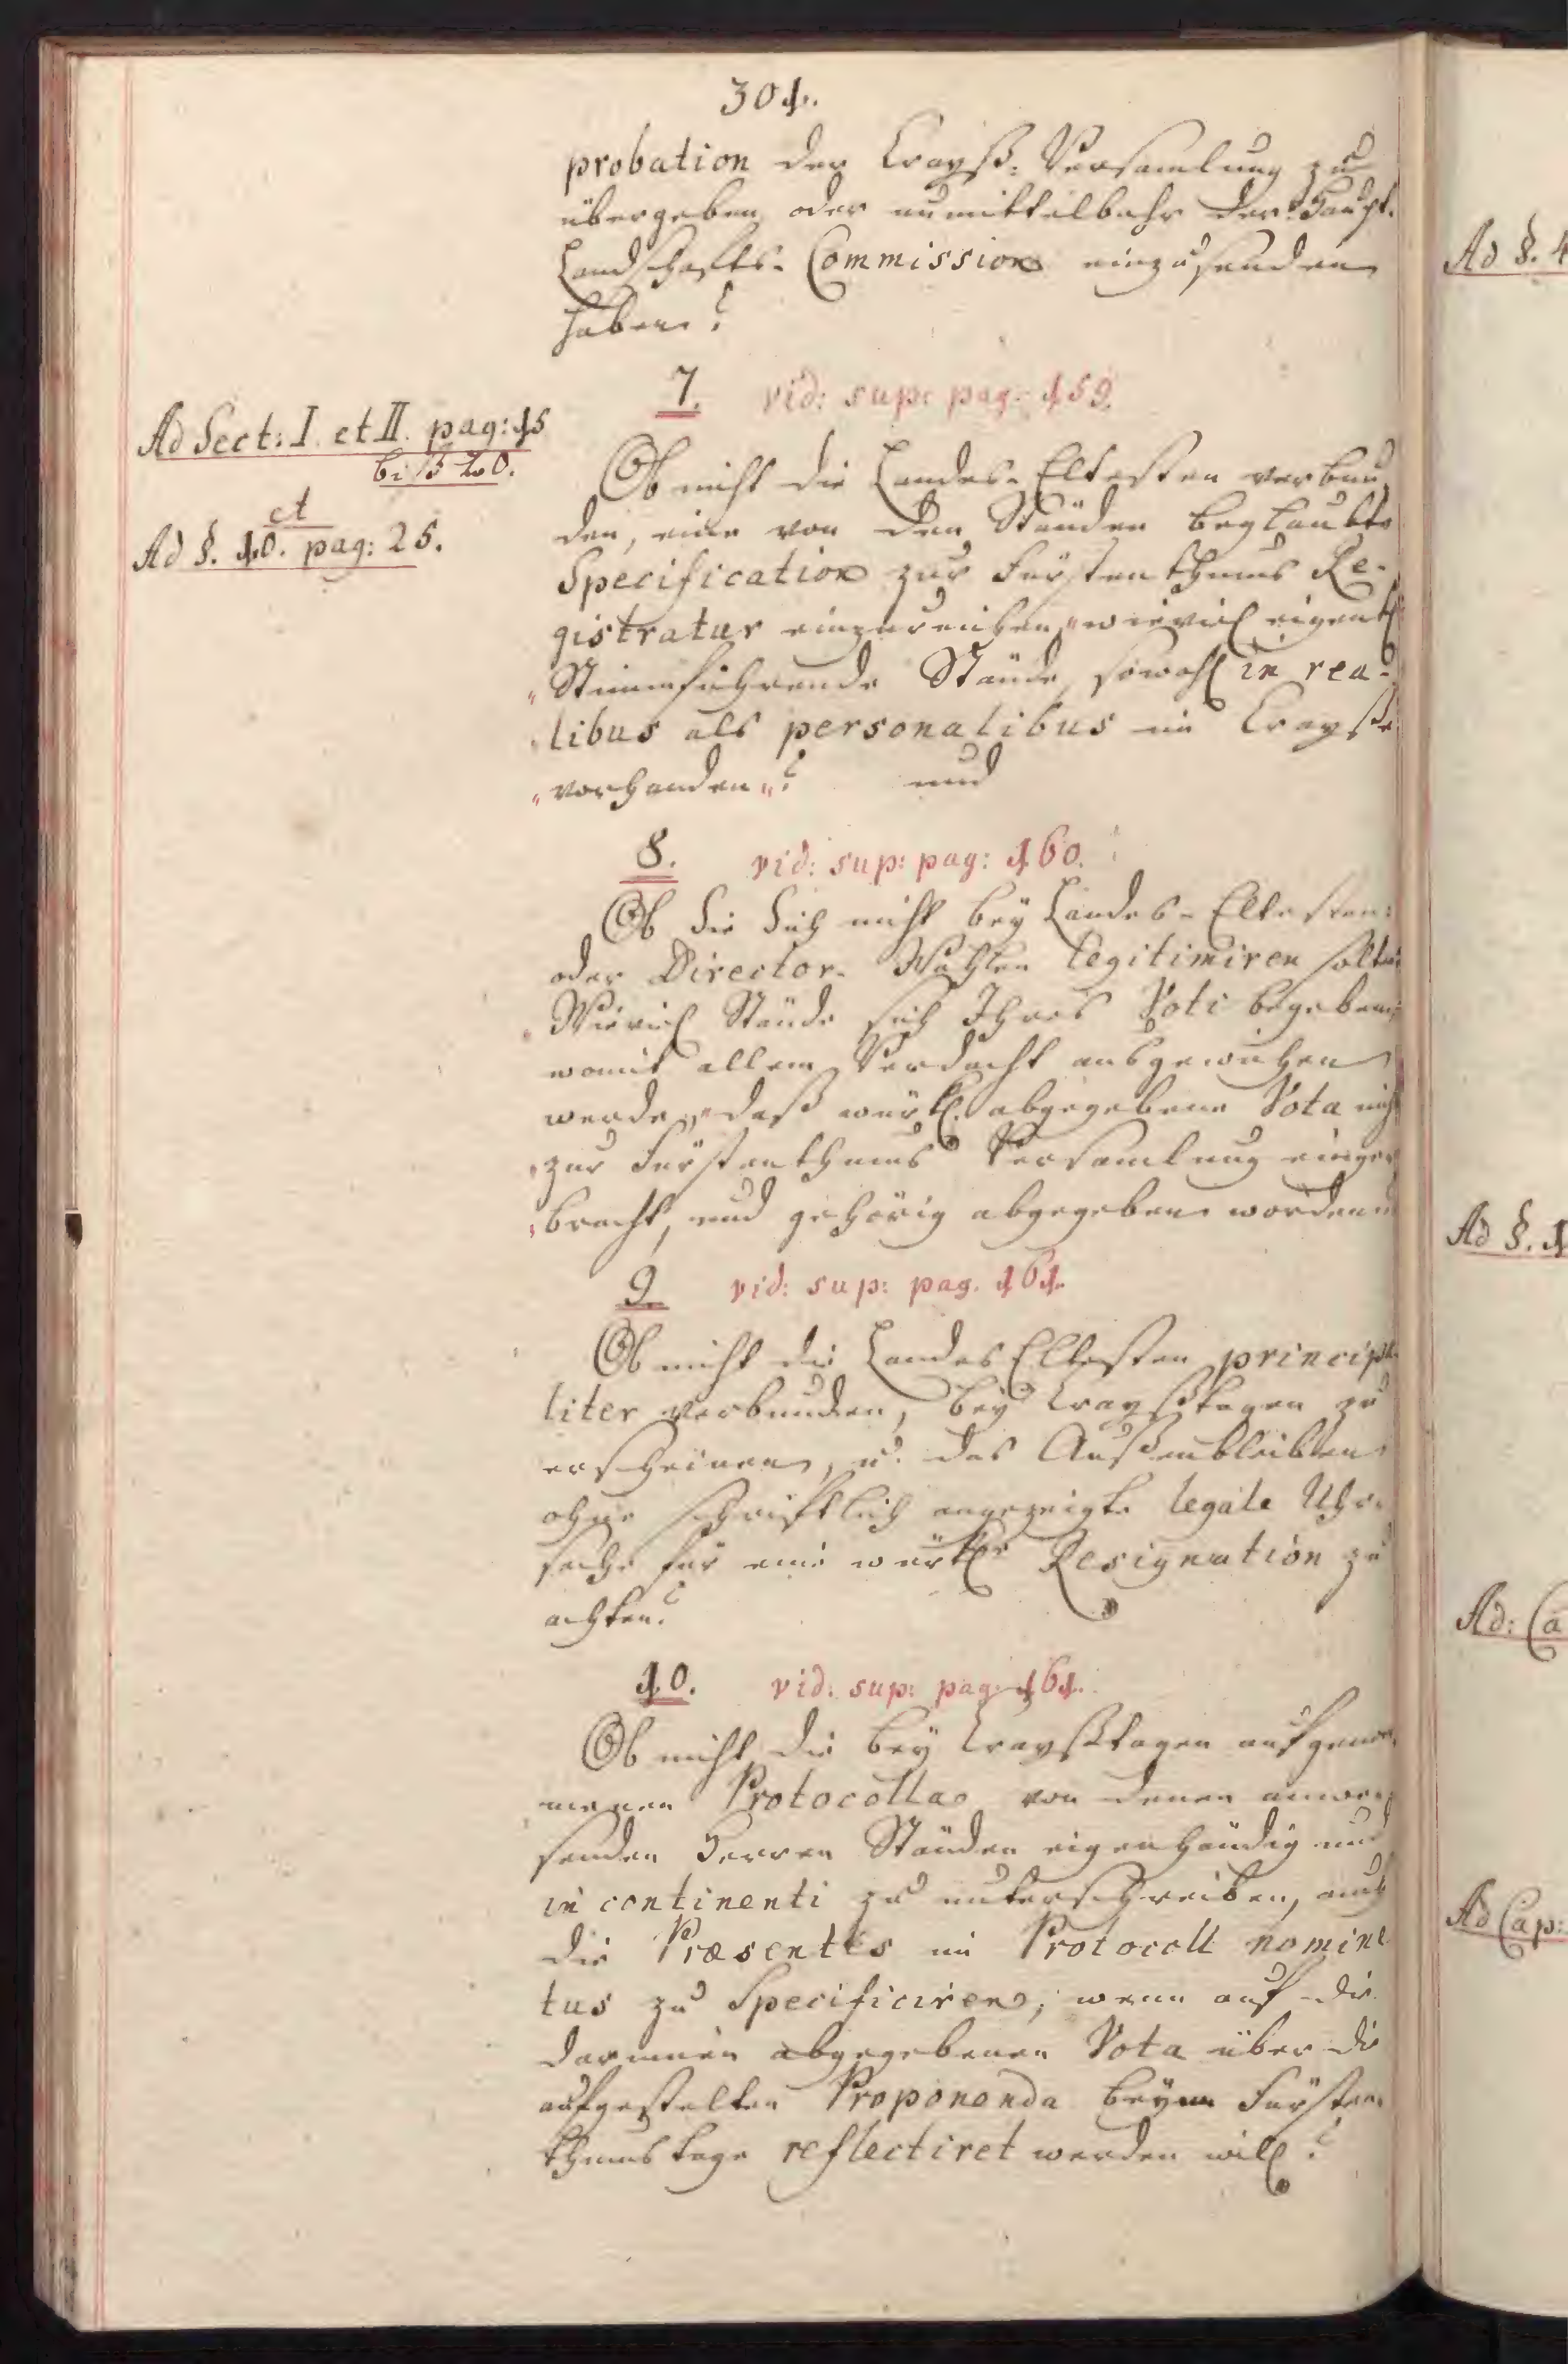 301.
probation der Crayß-Versamlung zu
übergeben, oder unmittelbahr der Haupt-
Landschafts-Commission einzusenden
haben?
7. vid: sup: pag: 159.
Ad Sect: I. et II. pag: 15
biß 20.
et
Ad §. 10. pag: 25.
Ob nicht die Landes-Eltesten verbun
den, eine von den Ständen beglaubte
Specification zur Fürstenthums Re-
gistratur einzureichen, "wieviel eigentl.
"Stimmführende Stände, sowohl in rea-
"libus als personalibus im Crayße
"vorhanden"? und
8. vid: sup: pag: 160.
Ob Sie Sich nicht bey Landes-Eltesten-
oder Director-Wahlen legitimiren solten
"Wieviel Stände sich Ihres Voti begeben,
womit allem Verdacht ausgewichen
werde, "daß würkl. abgegebene Vota nicht
"zur Fürstenthums Versamlung einge
"bracht, und gehörig abgegeben worden"
9. vid: sup: pag. 161.
Ob nicht die Landes Eltesten principa
liter verbunden, bey Crayßtagen zu
erscheinen, u. das Außenbleiben
ohne schriftlich angezeigte legale Uhr-
sache für eine würkl. Resignation zu
achten?
10. vid: sup: pag: 161.
Ob nicht die bey Crayßtagen aufgenom
menen Protocolla von denen anwe
senden Herren Ständen eigenhändig und
in continenti zu unterschreiben, auch
die Præsentes im Protocoll nomine
tus zu Specificiren, wenn auf die
darinnen abgegebenen Vota über die
aufgestelten Proponenda beym Fürsten
thumstage reflectiret werden will?
Ad §. 4
Ad §. 1
Ad: Ca
Ad Cap: